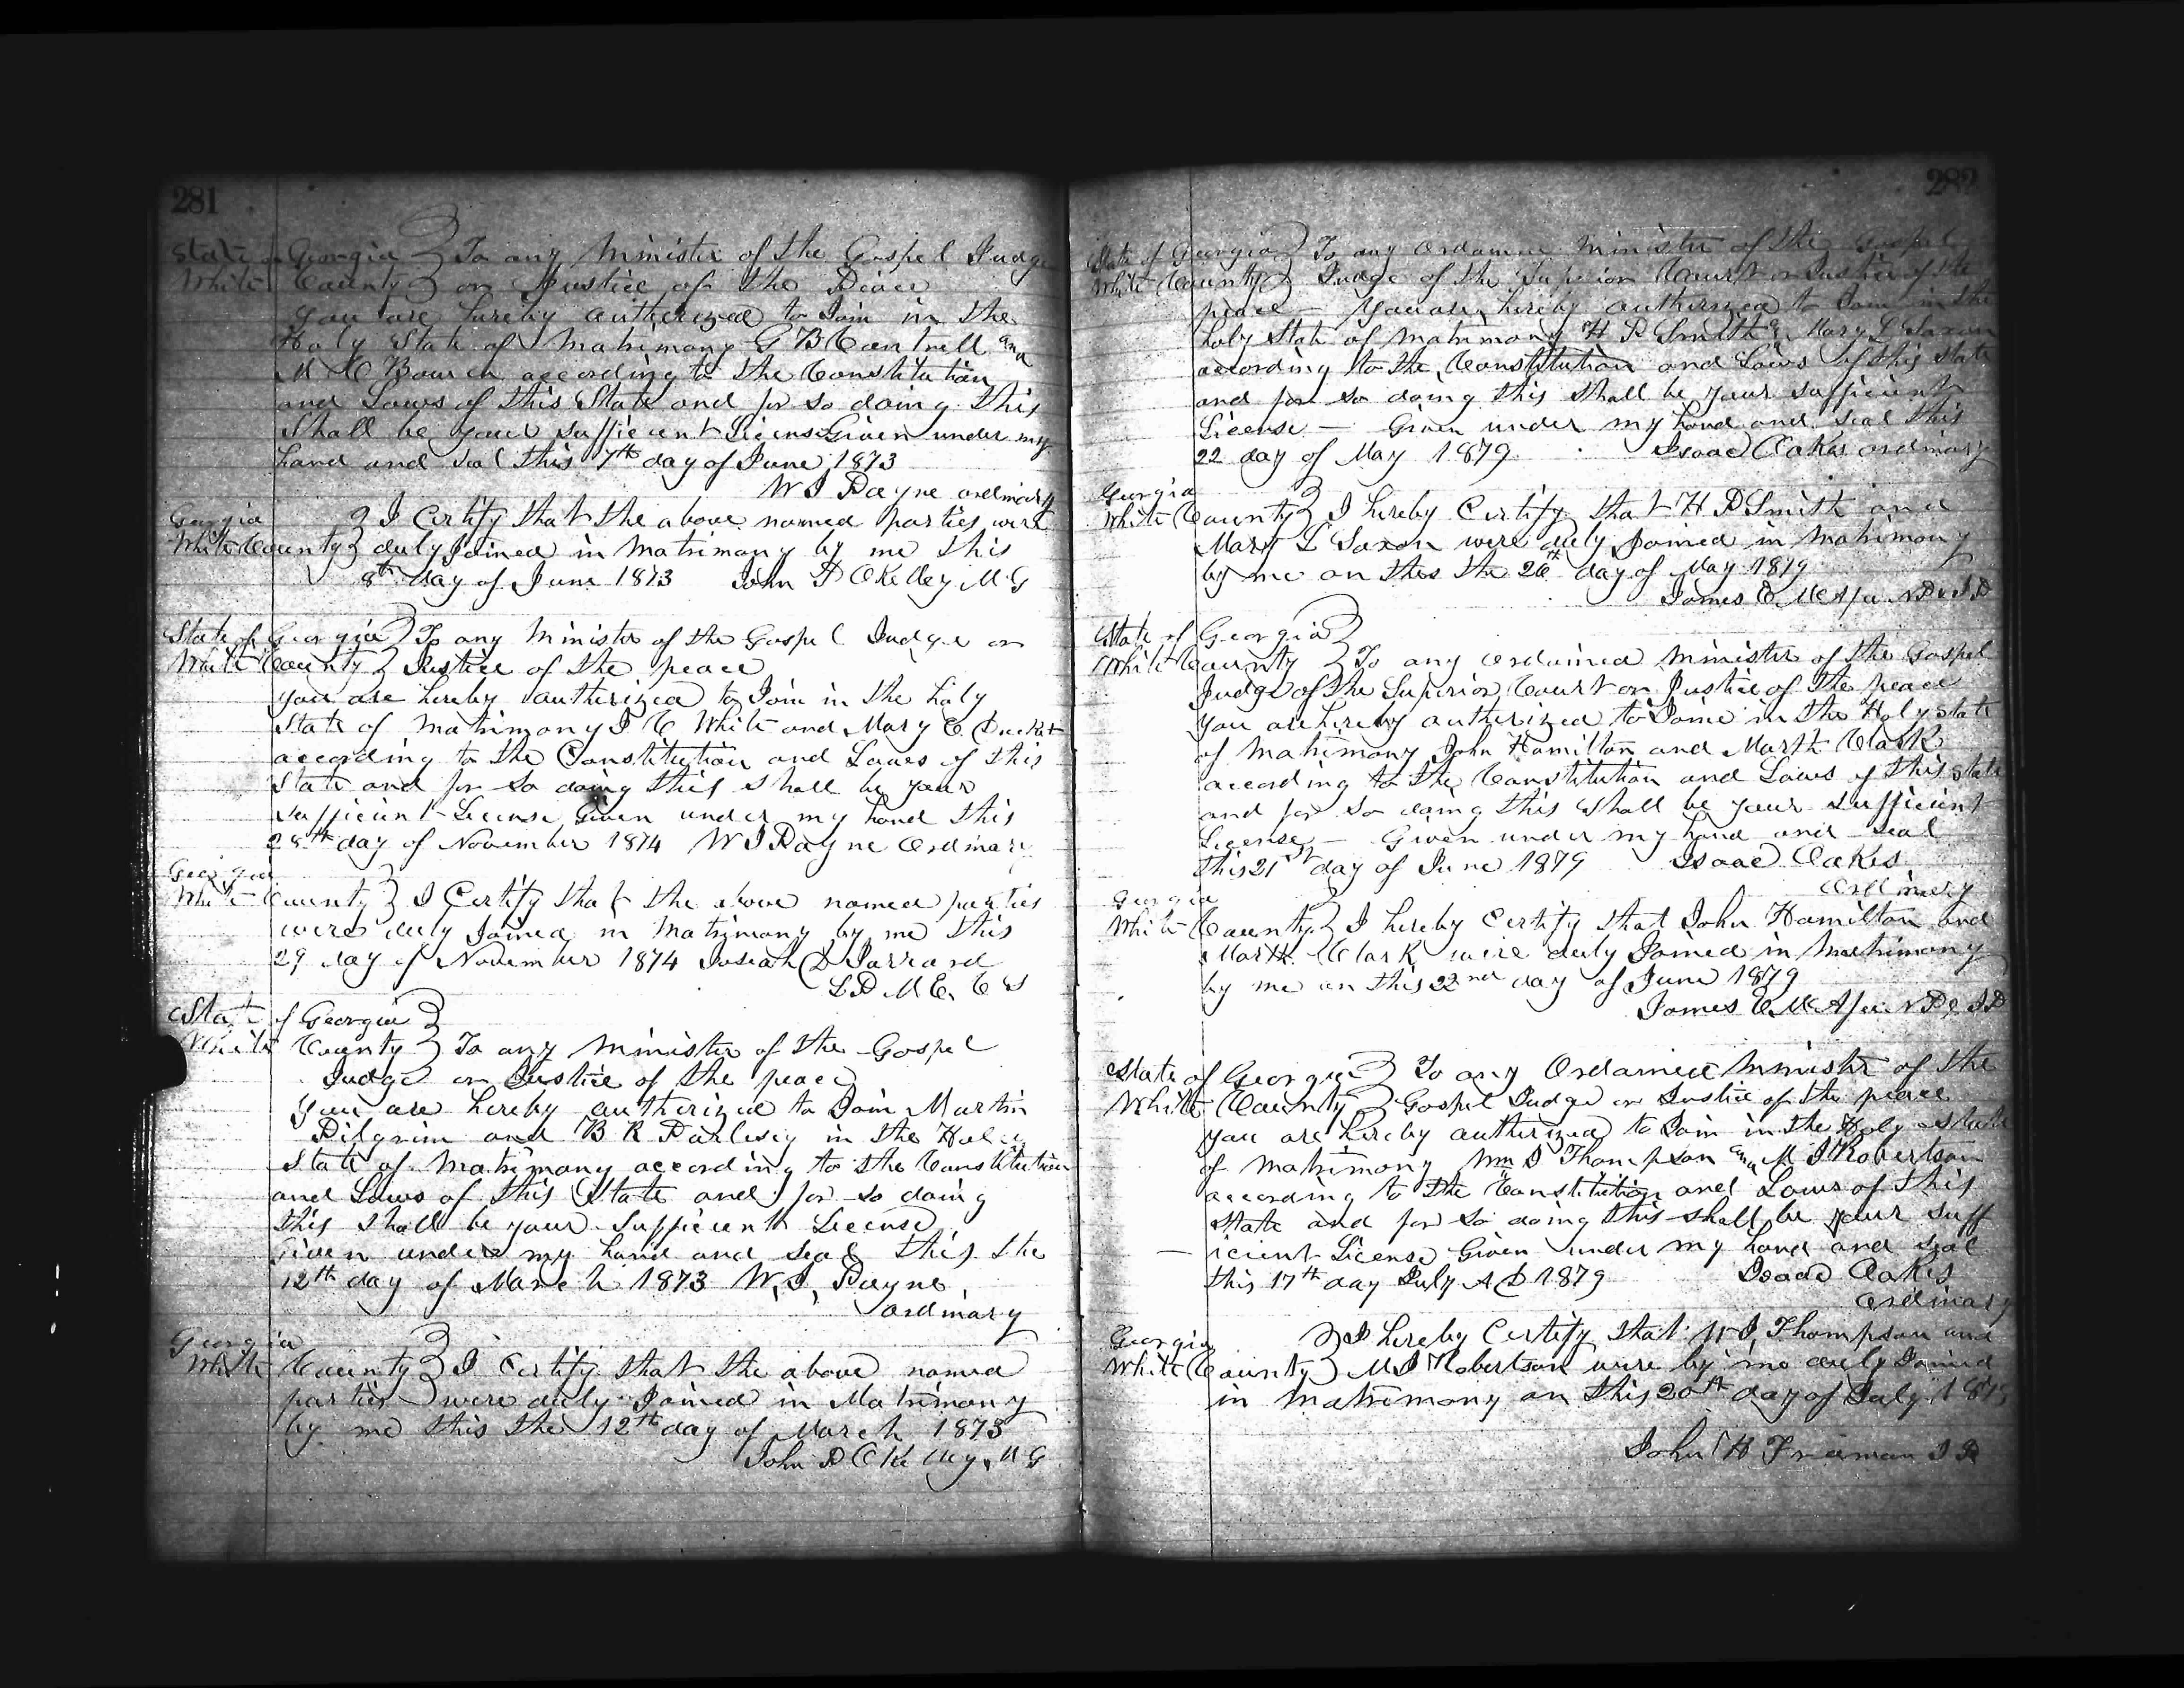 281
State of Georgia } To any Minister of the Gospel Judge
White County } or Justice of the Peace
you are hereby autherized to Join in the
Holy State of Matrimony G B Cantrell and
M C Bowen according to the Constitution
and Laws of this State and for so doing this
Shall be your sufficient License Given under my
hand and seal this 7th day of June 1873
W J Payne ordinary
Georgia
White County } I Certify that the above named parties were
duly Joined in Matrimony by me this
8th day of June 1873 John P OKelley M G
State of Georgia } To any Minister of the Gospel Judge or
White County } Justice of the peace
you are hereby autherized to Join in the holy
State of Matrimony J C White and Mary E Ducket
according to the Constitution and Laws of this
State and for so doing this shall be your
sufficient License Given under my hand this
28th day of November 1874 W J Payne Ordinary
Georgia
White County } I Certify that the above named parties
were duly Joined in Matrimony by me this
29 day of November 1874 Josiah D Jarrard
L D M E. C S
State of Georgia }
White County } To any Minister of the Gospel
Judge or Justice of the peace
You are hereby autherized to Join Martin
Pilgrim and B R in the Holy
State of Matrimony according to the Constitution
and Laws of this State and for so doing
this shall be your Sufficient License
Given under my hand and seal this the
12th day of March 1873 W. J. Payne
ordinary
Georgia
White County } I Certify that the above named
parties were duly Joined in Matrimony
by me this the 12th day of March 1873
John P OKelley, M G
282
State of Georgia } To any Ordained Minister of the Gospel
White County } Judge of the Superior Court or Justice of the
peace — You are hereby autherized to Join in the
holy State of Matrimony H P Smith & Mary L Saxon
according to the Constitution and Laws of this State
and for so doing this shall be your sufficient
License — Given under my hand and seal this
22 day of May 1879 Isaac Oakes ordinary
Georgia
White County } I hereby Certify that H P Smith and
Mary L Saxon were duly Joined in Matrimony
by me on this the 26th day of May 1879
James E McAfee N P & J P
State of Georgia }
White County } To any ordained Minister of the Gospel
Judge of the Superior Court or Justice of the peace
You are hereby autherized to Joine in the Holy State
of Matrimony John Hamilton and Marth Clark
according to the Constitution and Laws of this State
and for so doing this Shall be your sufficient
License — Given under my hand and seal
this 21st day of June 1879 Isaac Oakes
Ordinary
Georgia
White County } I hereby Certify that John Hamilton and
Marth Clark were duly Joined in Matrimony
by me on this 22nd day of June 1879
James E McAfee N P & J P
State of Georgia } To any Ordained Minister of the
White County } Gospel Judge or Justice of the peace
you are hereby autherized to Join in the Holy State
of Matrimony Wm J Thompson and M J Robertson
according to the Constitution and Laws of this
State and for so doing this shall be your suff
— icient License Given under my hand and seal
this 17th day July A D 1879 Isaac Oakes
Ordinary
Georgia } I hereby Certify that W J Thompson and
White County } M J Robertson were by me duly Joined
in Matrimony on this 20th day of July 1879
John H Freeman J P